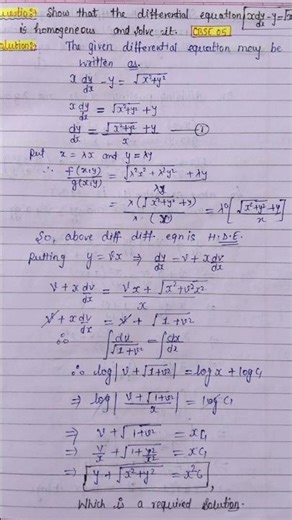 Question:- Show that the differential equation [x dy - y = √x
is homogeneous and solve it. CBSE 05
Solution:- The given differential equation may be
written as
x dy/dx - y = √x²+y²
x dy/dx = √x²+y² + y
dy/dx = √x²+y² + y / x —— (i)
Put x = λx and y = λy
∴ f(x,y)/g(x,y) = √λ²x² + λ²y² + λy / λx
= λ (√x²+y² + y) / λ · (x) = λ⁰ [√x²+y² + y / x]
So, above diff diff eqn is H.D.E.
Putting y = vx ⇒ dy/dx = v + x dv/dx
v + x dv/dx = vx + √x²+v²x² / x
v + x dv/dx = v + √1+v²
∴ ∫ dv/√1+v² = ∫ dx/x
∴ log|v + √1+v²| = log x + log C₁
⇒ log |v + √1+v² / x| = log C₁
⇒ v + √1+v² = xC₁
⇒ y/x + √1+y²/x² = xC₁
⇒ [y + √x²+y² = x²C₁],
Which is a required solution.